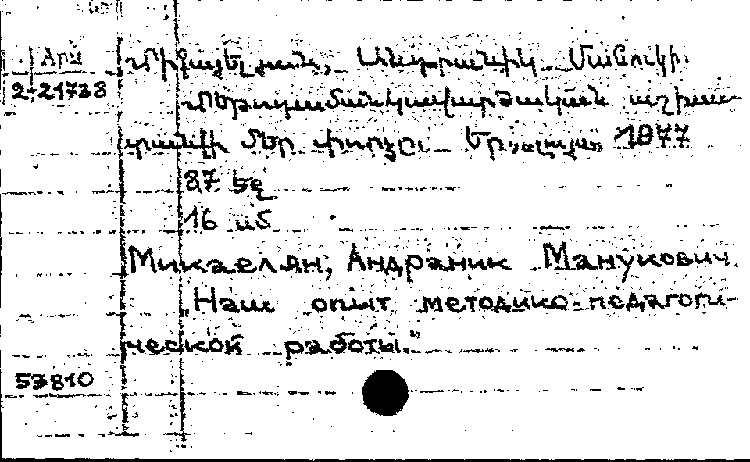 Արմ
2-21738
Միքայելյան, Անդրանիկ Մանուկի
Մեթոդամանկավարժական աշխա-
տանքի մեր փորձը. Եր., 1977
87 էջ
16 սմ
Микаелян, Андраник Манукович
„Наш опыт методико-педагоги-
ческой работы.“
53810